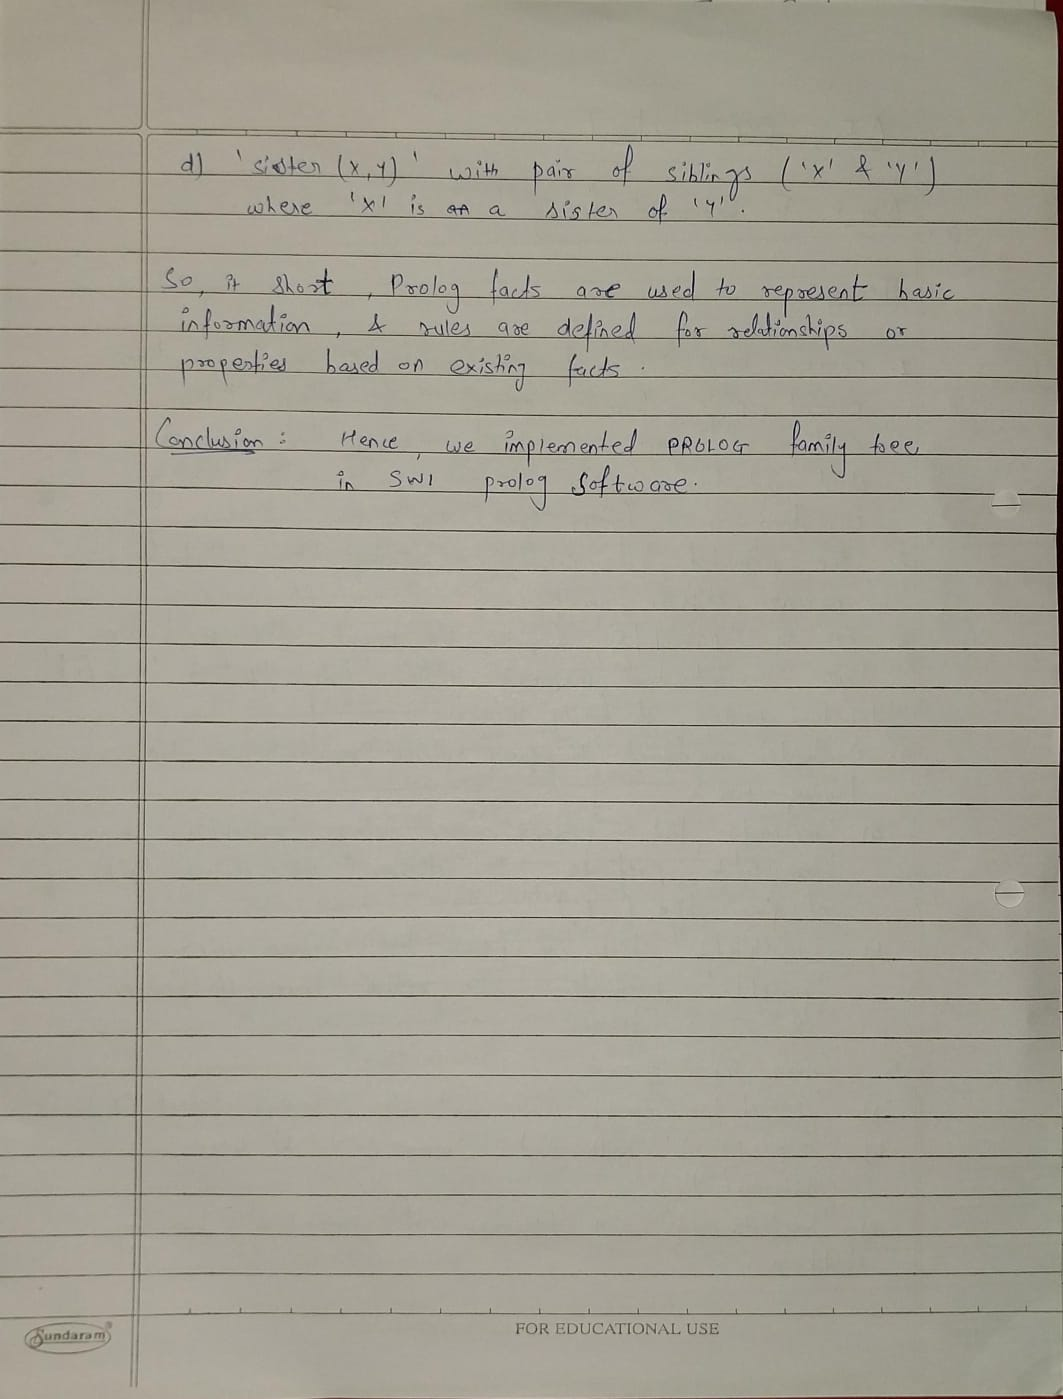 d) 'sister (x, y)' with pair of siblings ('x' & 'y')
where 'x' is a sister of 'y'.
So, it short, Prolog facts are used to represent basic
information, & rules are defined for relationships or
properties based on existing facts.
Conclusion : Hence, we implemented PROLOG family tree
in SWI prolog software.
Sundaram®
FOR EDUCATIONAL USE